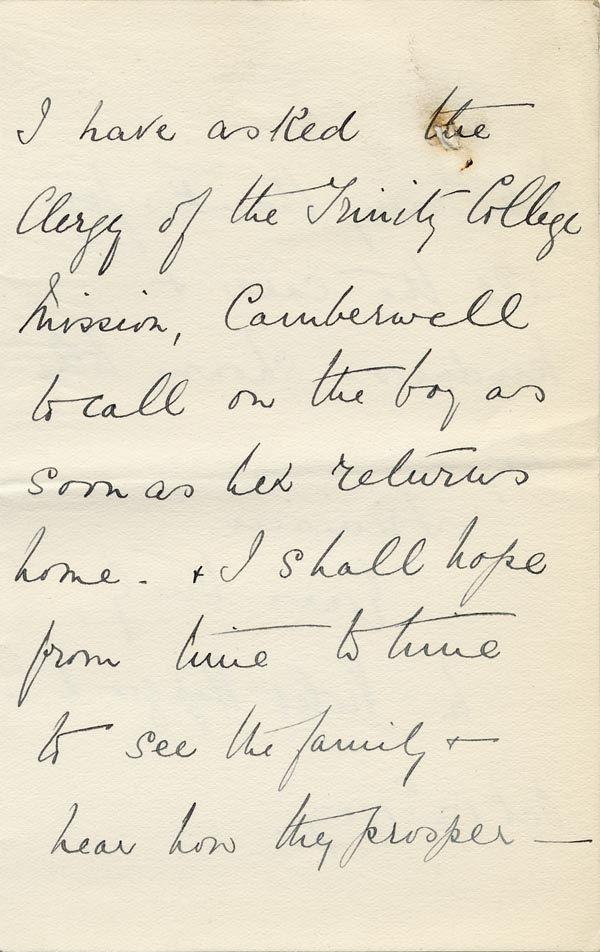 I have asked the
Clergy of the Trinity College
Mission, Camberwell
to call on the boy as
soon as he returns
home. + I shall hope
from time to time
to see the family +
hear how they prosper —